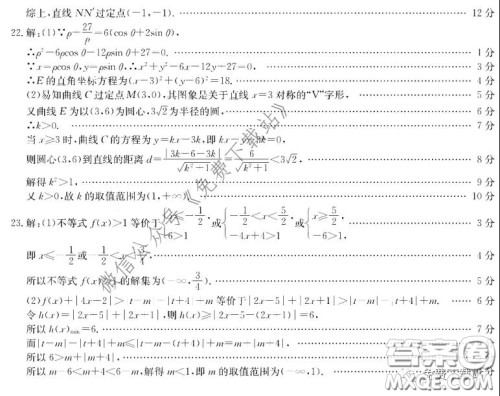 综上,直线 NN′过定点(-1,-1). 12分
22.解:(1)∵ρ-27/ρ=6(cos θ+2sin θ),
∴ρ²-6ρcos θ-12ρsin θ+27=0. 1分
∵x=ρcos θ,y=ρsin θ,∴x²+y²-6x-12y+27=0, 3分
∴E的直角坐标方程为(x-3)²+(y-6)²=18. 4分
(2)易知曲线C过定点M(3,0),其图象是关于直线 x=3 对称的“V”字形, 5分
又曲线E为以(3,6)为圆心,3√2为半径的圆, 6分
∴k>0. 7分
当x≥3时,曲线C的方程为y=kx-3k,即kx-y-3k=0,
则圆心(3,6)到直线的距离d=|3k-6-3k|/√(k²+1)=6/√(k²+1)<3√2, 8分
解得k²>1, 9分
又k>0,故k的取值范围为(1,+∞). 10分
23.解:(1)不等式 f(x)>1等价于 -1/2, -6>1 或 { -1/2<x<5/2, -4x+4>1 或 { x≥5/2, -6>1
即x≤-1/2或-1/2<x<
所以不等式 f(x)>1的解集为(-∞,3/4). 5分
(2)f(x)+|4x+2|>|t-m|-|t+4|+m等价于|2x-5|+|2x+1|>|t-m|-|t+4|+m,
令h(x)=|2x-5|+|2x+1|,则h(x)≥|2x-5-(2x+1)|=6,
所以h(x)min=6. 7分
而|t-m|-|t+4|+m≤|t-m-(t+4)|+m=|m+4|+m,
所以6>m+|m+4|,
所以m-6<m+4<6-m,解得m<1,即m的取值范围为(-∞,1).
微信公众号《免费下载站》
答案圈